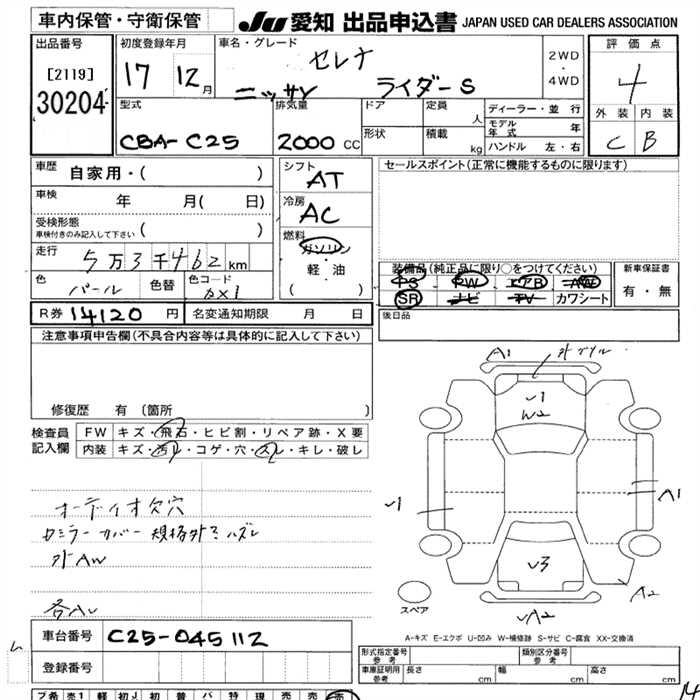 車内保管・守衛保管
JU 愛知 出品申込書 JAPAN USED CAR DEALERS ASSOCIATION
出品番号
[2119]
30204
初度登録年月
17 12月
車名・グレード
セレナ
ニッサン ライダーS
2WD
・
4WD
評価点
4
外装 内装
C B
型式
CBA-C25
排気量
2000 CC
ドア
形状
定員 人
積載 kg
ディーラー・並行
モデル年式 年
ハンドル 左・右
車歴 自家用・( )
車検 年 月( 日)
受検形態
車検付きのみ記入して下さい ( )
走行 5万3千462km
色 パール 色替 色コード
シフト AT
冷房 AC
燃料
ガソリン
・
軽・油
( )
セールスポイント(正常に機能するものに限ります)
装備品(純正品に限り○をつけてください)
PS PW エアB AW
SR ナビ TV カワシート
新車保証書
有・無
R券 14120円 名変通知期限 月 日
後日品
注意事項申告欄(不具合内容等は具体的に記入して下さい)
修復歴 有(箇所 )
検査員記入欄
FW キズ・飛石・ヒビ割・リペア跡・X要
内装 キズ・汚レ・コゲ・穴・スレ・キレ・破レ
オーディオ欠穴
ミラーカバー規格外 ハズレ
外AW
A1
W2
A1
A2
A2
スペア
A-キズ E-エクボ U-凹み W-補修跡 S-サビ C-腐食 XX-交換済
車台番号 C25-045112
登録番号
形式指定番号 参考
類別区分番号 参考
車庫証明用 参考 長さ cm 幅 cm 高さ cm